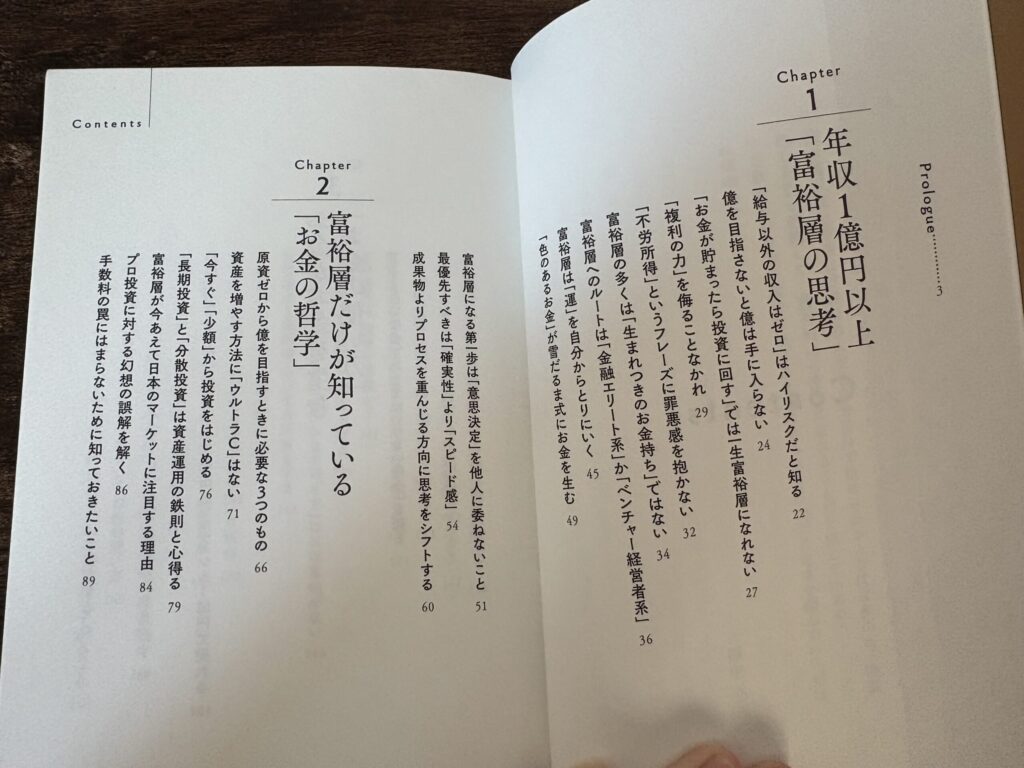 Prologue…………3
Chapter
1
年収1億円以上
「富裕層の思考」
「給与以外の収入はゼロ」はハイリスクだと知る 22
億を目指さないと億は手に入らない 24
「お金が貯まったら投資に回す」では一生富裕層になれない 27
「複利の力」を侮ることなかれ 29
「不労所得」というフレーズに罪悪感を抱かない 32
富裕層の多くは「生まれつきのお金持ち」ではない 34
富裕層へのルートは「金融エリート系」か「ベンチャー経営者系」 36
富裕層は「運」を自分からとりにいく 45
「色のあるお金」が雪だるま式にお金を生む 49
Contents
富裕層になる第一歩は「意思決定」を他人に委ねないこと 51
最優先すべきは「確実性」より「スピード感」 54
成果物よりプロセスを重んじる方向に思考をシフトする 60
Chapter
2
富裕層だけが知っている
「お金の哲学」
原資ゼロから億を目指すときに必要な3つのもの 66
資産を増やす方法に「ウルトラC」はない 71
「今すぐ」「少額」から投資をはじめる 76
「長期投資」と「分散投資」は資産運用の鉄則と心得る 79
富裕層が今あえて日本のマーケットに注目する理由 84
プロ投資に対する幻想の誤解を解く 86
手数料の罠にはまらないために知っておきたいこと 89